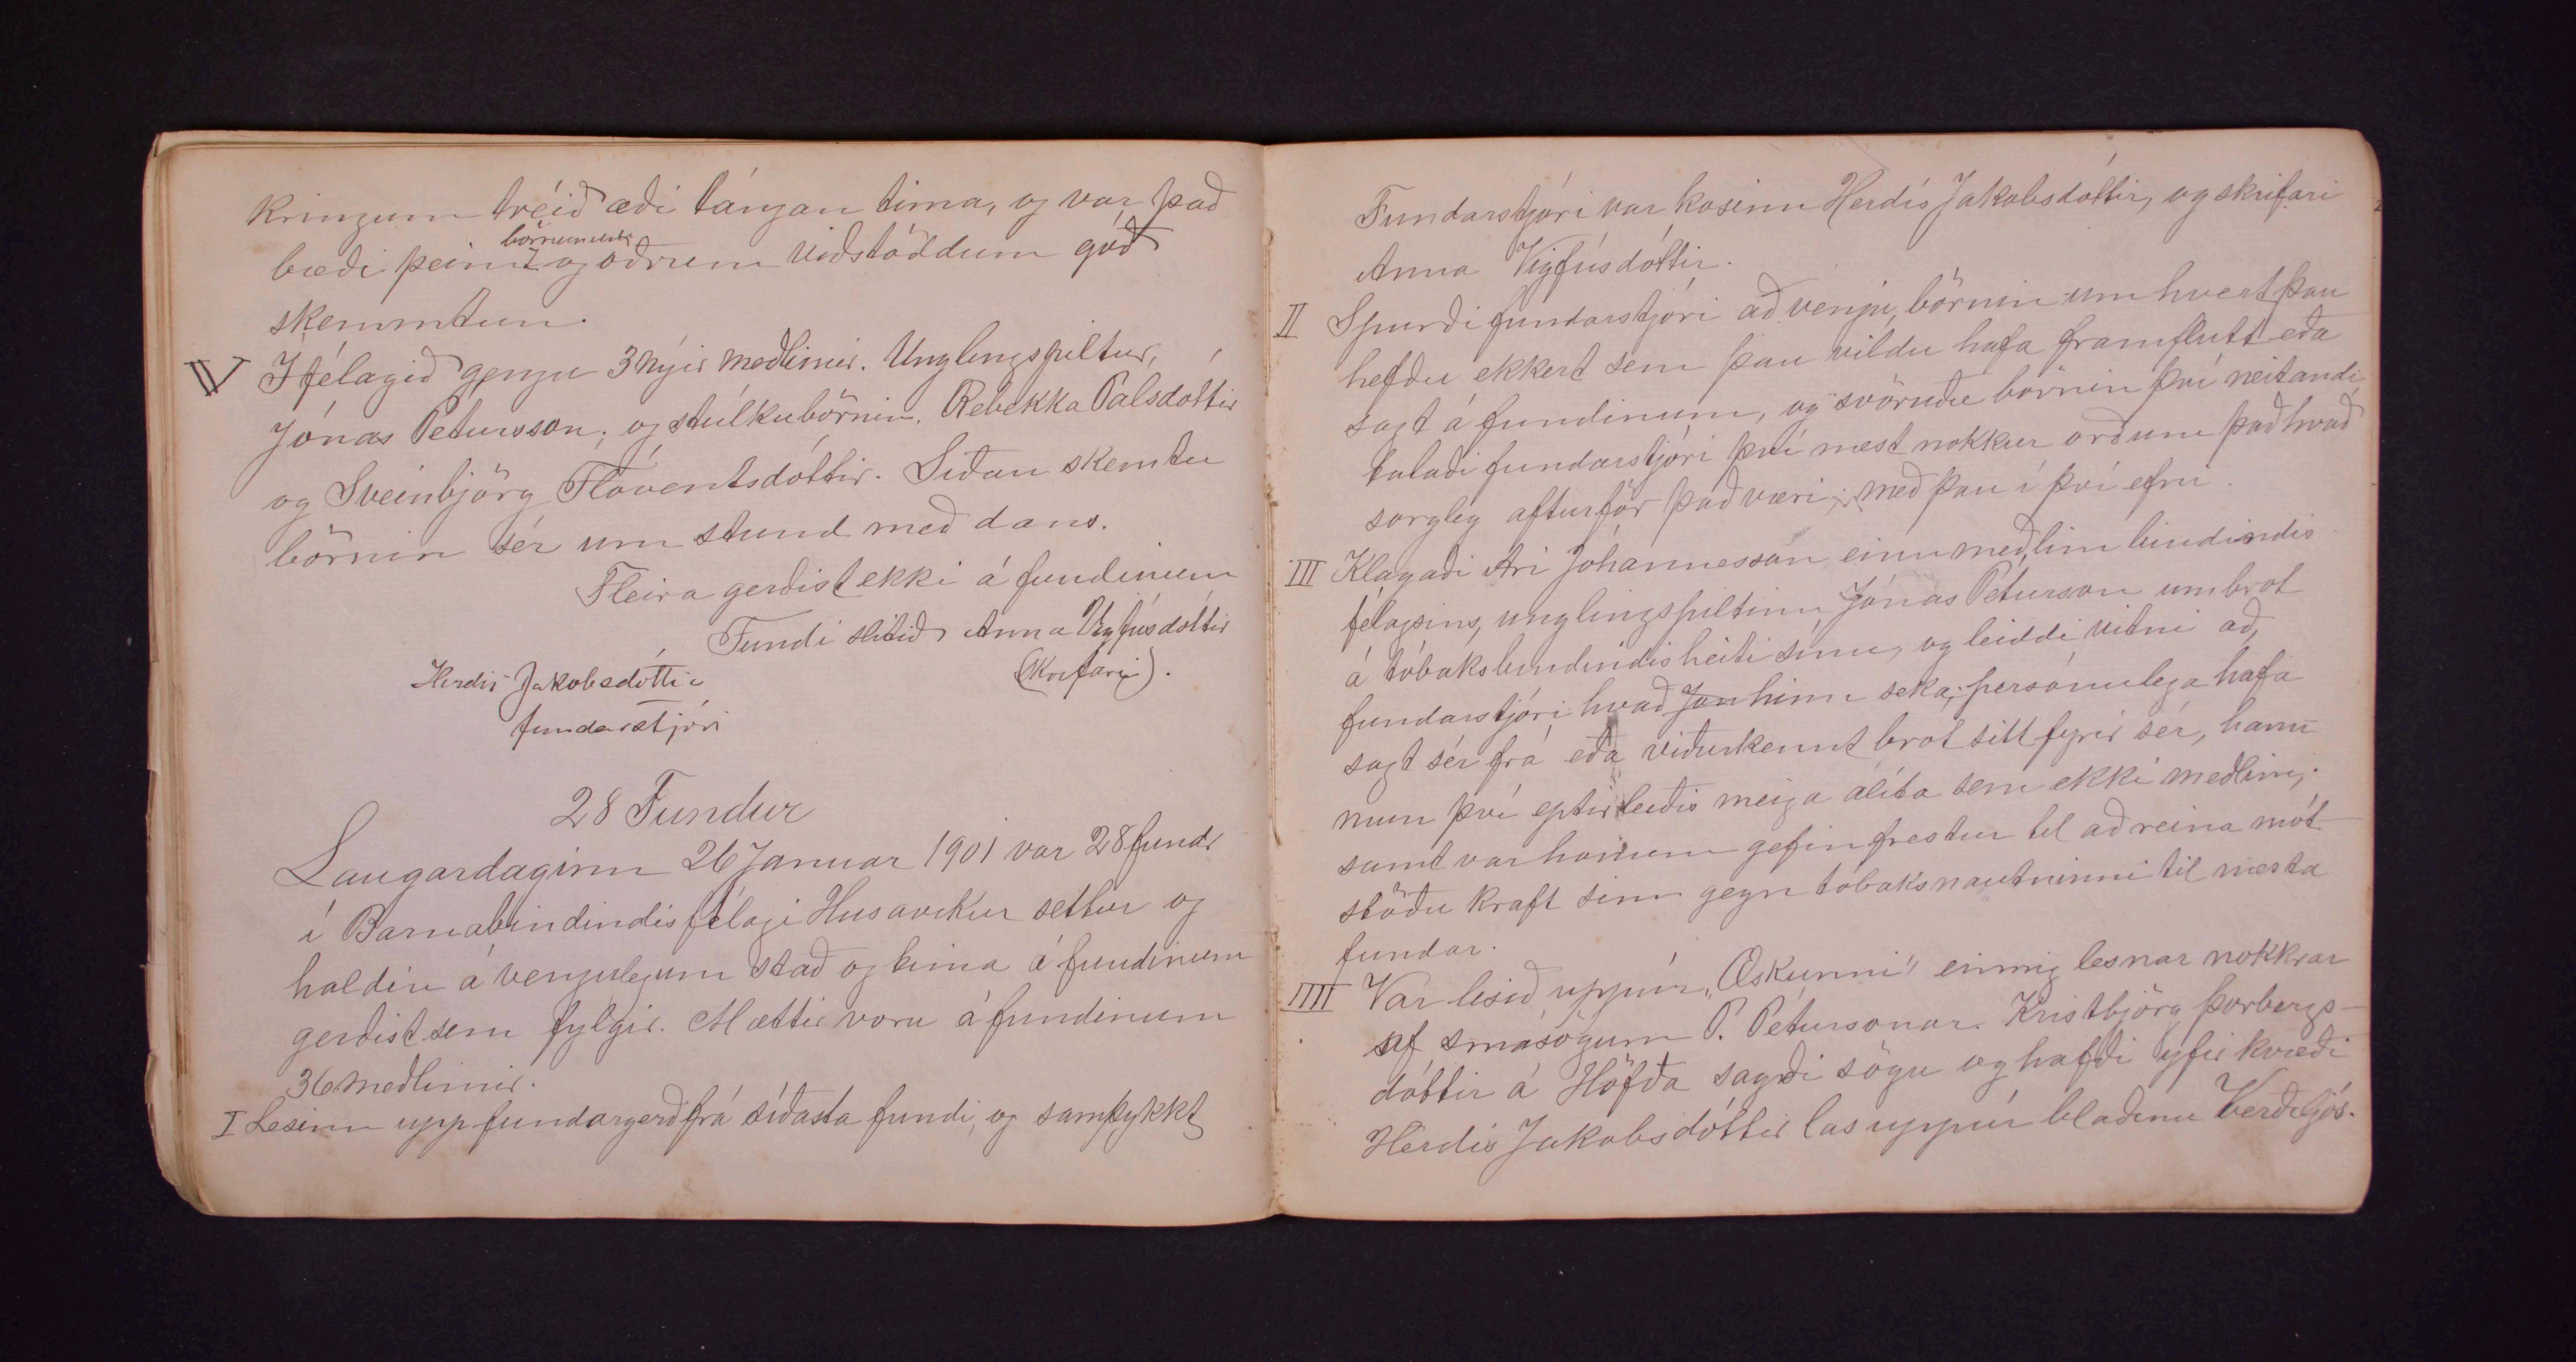 kringum tréið æði lángan tima, og var það
bæði þeim börnunum og öðrum viðstöddum góð
skemmtun.
IV Í félagið gengu 3 nýir meðlimir. Unglingspiltur,
Jónas Petursson; og stúlkubörnin, Rebekka Pálsdóttir
og Sveinbjörg Flóventsdóttir. Síðan skemtu
börnin sér um stund með dans.
Fleira gerðist ekki á fundinum
Fundi slitið Anna Vigfúsdóttir
(skrifari).
Herdís Jakobsdóttir
fundarstjóri
28 Fundur
Laugardaginn 26 Januar 1901 var 28 fundr
í Barnabindindisfélagi Husavikur settur og
haldin á venjulegum stað og tima á fundinum
gerðist sem fylgir. Mættir voru á fundinum
36 meðlimir.
I Lesinn upp fundargerð frá síðasta fundi, og samþykkt
Fundarstjóri var kosinn Herdís Jakobsdóttir, og skrifari
Anna Vigfúsdóttir.
II Spurði fundarstjóri að venju, börnin um hvert þau
hefðu ekkert sem þau vildu hafa framflutt eða
sagt á fundinum, og svöruðu börnin því neitandi,
talaði fundarstjóri því næst nokkur orð um það hvað
sorgleg afturför það væri, með þau í því efni.
III Klagaði Ari Jóhannesson einn meðlim bindindis
félagsins, unglingspiltinn, Jónas Péturson um brot
á tóbaksbindindisheiti sínu, og leiddi vitni að,
fundarstjóri hvað Jón hinn seka, persónulega hafa
sagt sér frá eða viðurkennt brot sitt fyrir sér, hann
mun því eptirleiðis meiga álita sem ekki meðlim;
samt var honum gefin frestur til að reina mót
stöðu kraft sinn gegn tóbaksnautninni til næsta
fundar.
IIII Var lesið uppúr „Æskunni" einnig lesnar nokkrar
af smásögum P. Péturssonar. Kristbjörg Þorbergs-
dóttir á Höfða sagði sögu og hafði yfir kvæði
Herdís Jakobsdóttir las uppúr blaðinu Verði ljós.